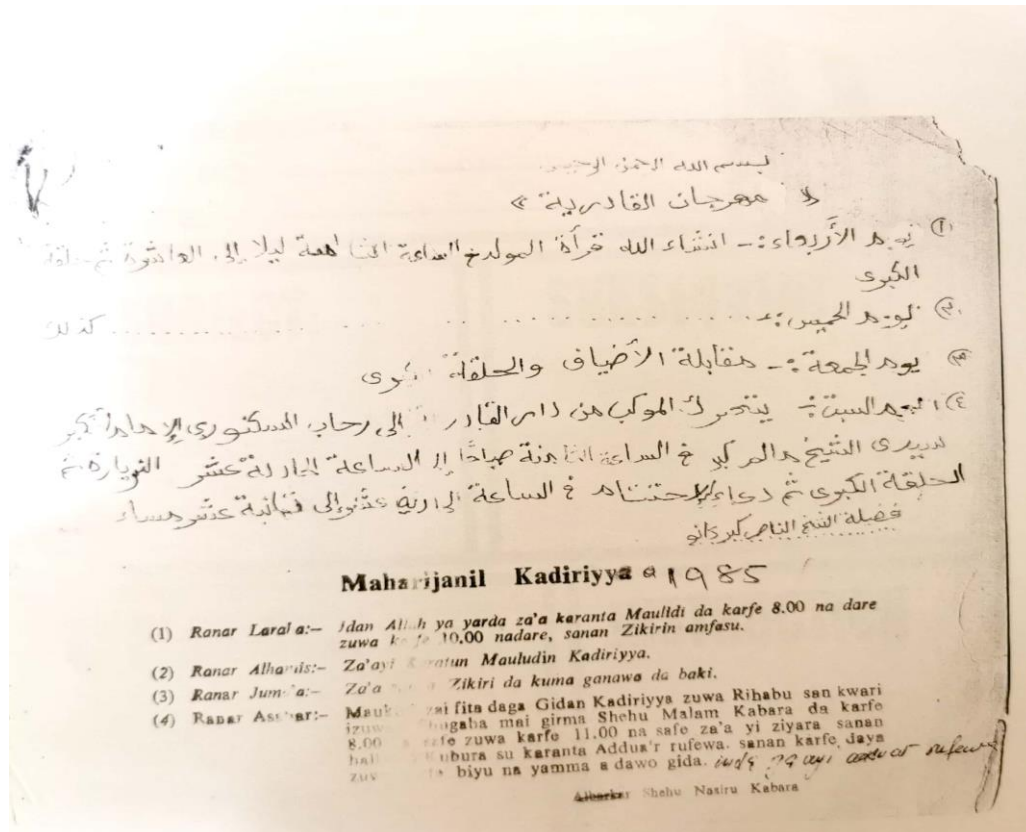 بسم الله الرحمن الرحيم
« مهرجان القادرية »
(١) يوم الأربعاء :- انشاء الله قرأة المولد في الساعة الثامنة ليلا إلى العاشرة ثم حلقة
الكبرى
(٢) يوم الخميس :- .......... كذلك
(٣) يوم الجمعة :- مقابلة الأضياف والحلقة
(٤) السبت :- يتحرك الموكب من دار إلى رحاب
سيدى الشيخ مالم كبر في الساعة الثامنة صباحًا إلى الساعة عشر الزيارة ثم
الحلقة الكبرى ثم دعاء في الساعة إلى مساء
فضيلة الشيخ الناصر كبر كانو
Maharijanil Kadiriyya 1985
(1) Ranar Laraba:– Idan Allah ya yarda za'a karanta Maulidi da karfe 8.00 na dare
zuwa karfe 10.00 nadare, sanan Zikirin amfasu.
(2) Ranar Alhamis:– Za'ayi Mauludin Kadiriyya.
(3) Ranar Jum'a:– Za'a Zikiri da kuma ganawa da baki.
(4) Ranar :– zai fita daga Gidan Kadiriyya zuwa Rihabu san kwari
mai girma Shehu Malam Kabara da karfe
8.00 zuwa karfe 11.00 na safe za'a yi ziyara sanan
su karanta Addua'r rufewa. sanan karfe daya
biyu na yamma a dawo gida.
Shehu Nasiru Kabara